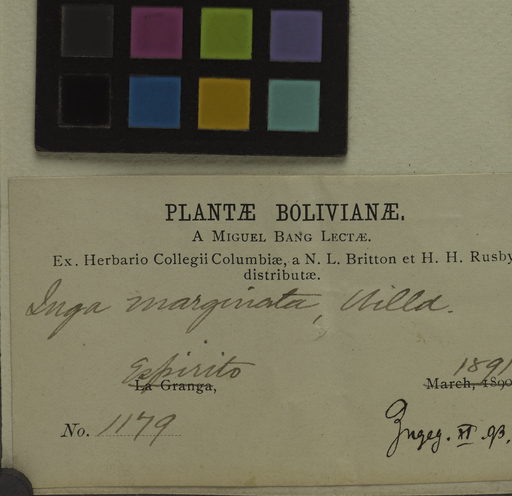 PLANTÆ BOLIVIANÆ.
A MIGUEL BANG LECTÆ.
Ex. Herbario Collegii Columbiæ, a N. L. Britton et H. H. Rusby
distributæ.
Inga marginata, Willd.
Espirito 1891
La Granga, March, 1890
No. 1179
Zugeg. XI. 93.